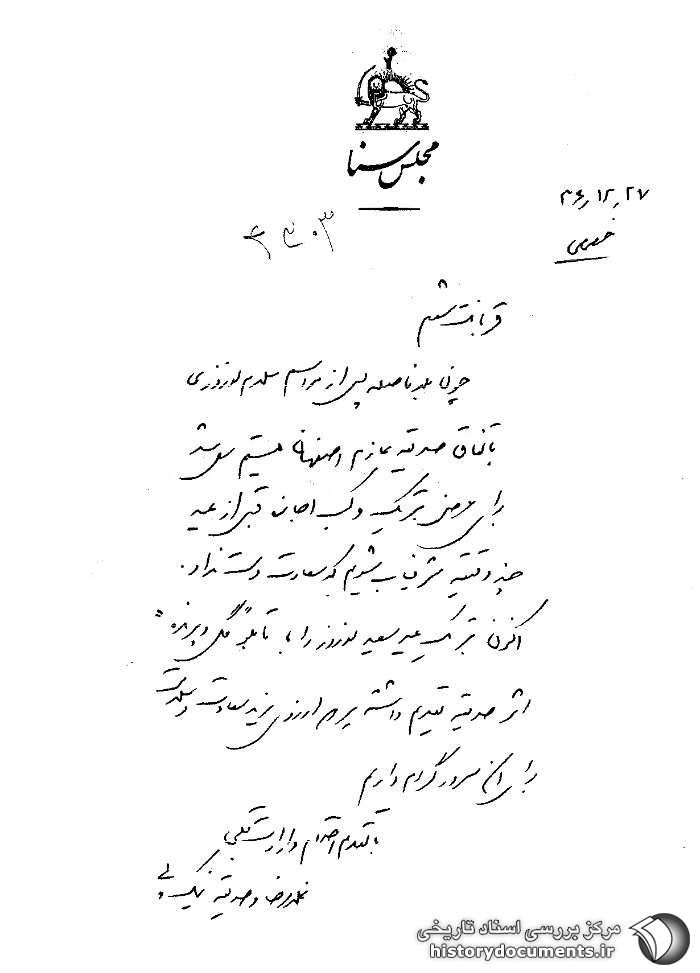 مجلس سنا
۳۶٫۱۲٫۲۷
خصوصی
قربانت شوم
چون بلافاصله پس از مراسم سلام نوروزی
باتفاق صدیقه عازم اصفهان هستیم سعی شد
برای عرض تبریک و کسب اجازه قبل از عید
چند دقیقه شرفیاب شویم که سعادت دست نداد.
اکنون تبریک عید سعید نوروز را با تابلو "گل و پرنده"
اثر صدیقه تقدیم داشته و آرزوی مزید سعادت و سلامت
برای آن سرور گرام داریم
با تقدیم احترام و ارادت قلبی
و صدیقه نیک پی
مرکز بررسی اسناد تاریخی
historydocuments.ir